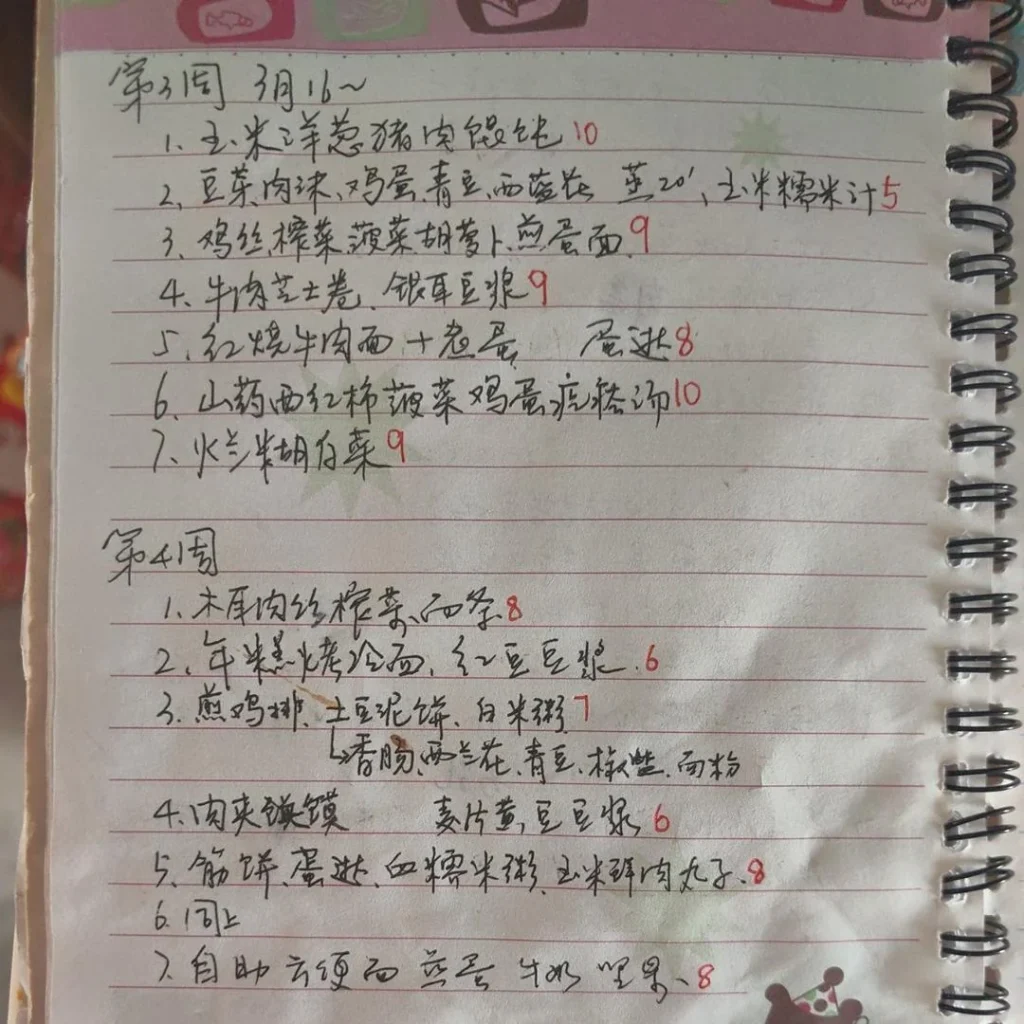 第3周 3月16~
1、玉米洋葱猪肉馄饨10
2、豆芽肉沫、鸡蛋、青豆、西蓝花 蒸20'、玉米糯米汁5
3、鸡丝榨菜菠菜胡萝卜煎蛋面、9
4、牛肉芝士卷、银耳豆浆9
5、红烧牛肉面+煮蛋 蛋挞8
6、山药西红柿菠菜鸡蛋疙瘩汤10
7、火兰米胡白菜9
第4周
1、木耳肉丝榨菜、面条8
2、年糕烤冷面、红豆豆浆、6
3、煎鸡排、土豆泥饼、白米粥、7
香肠、西兰花、青豆、椒盐、面粉
4、肉夹馍 麦片黄豆豆浆6
5、筋饼、蛋挞、血糯米粥、玉米鲜肉丸子、8
6、同上
7、自助方便面 蒸蛋 牛奶 坚果、8